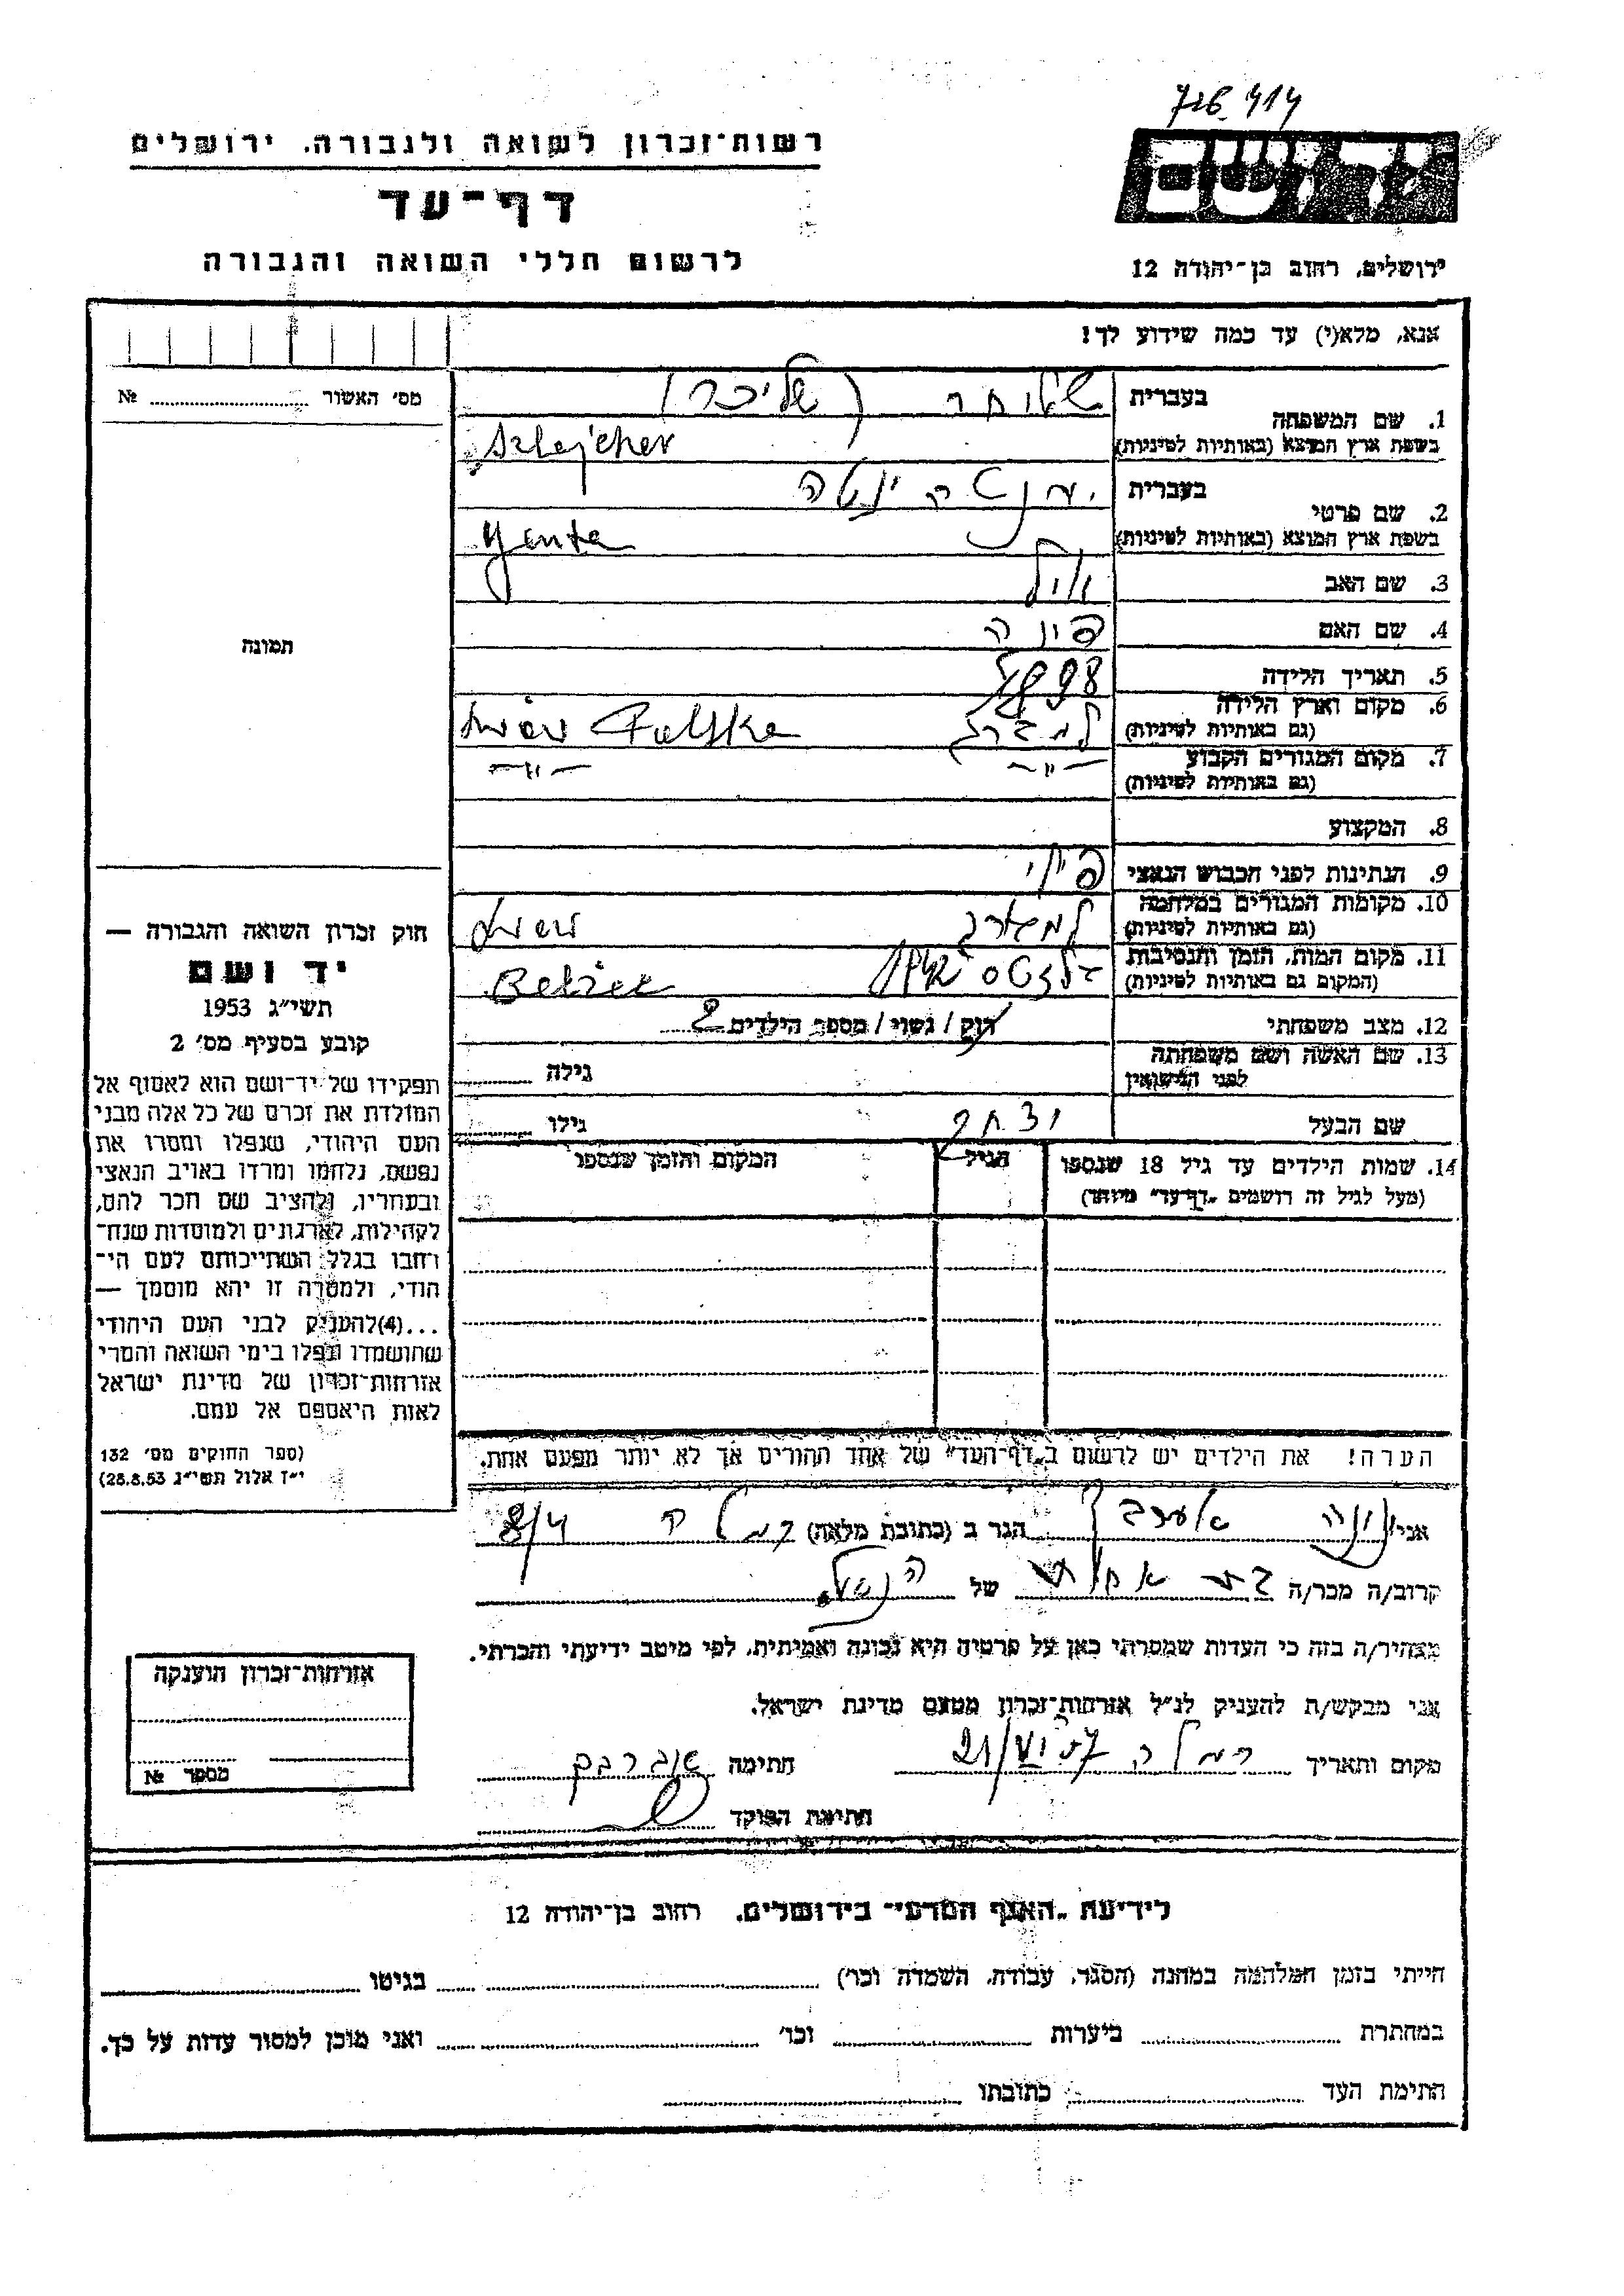 716 414
רשות־זכרון לשואה ולגבורה, ירושלים
דף־עד
לרשום חללי השואה והגבורה
יד ושם
ירושלים, רחוב בן־יהודה 12
אנא, מלא(י) עד כמה שידוע לך!
מס׳ האשור № 
1. שם המשפחה בעברית
בשפת ארץ המוצא (באותיות לטיניות) Szlejcher
2. שם פרטי בעברית ינטה
בשפת ארץ המוצא (באותיות לטיניות) Yenta
3. שם האב
4. שם האם
5. תאריך הלידה 1898
6. מקום וארץ הלידה למברג Lwów Polska
(גם באותיות לטיניות)
7. מקום המגורים הקבוע -"- -"-
(גם באותיות לטיניות)
8. המקצוע
9. הנתינות לפני הכבוש הנאצי
10. מקומות המגורים במלחמה למברג Lwow
(גם באותיות לטיניות)
11. מקום המות, הזמן והנסיבות 1942 Belżec
(המקום גם באותיות לטיניות)
12. מצב משפחתי רוק / נשוי / מספר הילדים 2
13. שם האשה ושם משפחתה גילה
לפני הנישואין
שם הבעל יצחק גילו
14. שמות הילדים עד גיל 18 שנספו הגיל המקום והזמן שנספו
(מעל לגיל זה רושמים „דף־עד" מיוחד)
תמונה
חוק זכרון השואה והגבורה —
יד ושם
תשי״ג 1953
קובע בסעיף מס׳ 2
תפקידו של יד־ושם הוא לאסוף אל
המולדת את זכרם של כל אלה מבני
העם היהודי, שנפלו ומסרו את
נפשם, נלחמו ומרדו באויב הנאצי
ובעוזריו, ולהציב שם וזכר להם,
לקהילות, לארגונים ולמוסדות שנח־
רבו בגלל השתייכותם לעם הי־
הודי, ולמטרה זו יהא מוסמך —
...(4)להעניק לבני העם היהודי
שהושמדו ונפלו בימי השואה והמרי
אזרחות־זכרון של מדינת ישראל
לאות היאספם אל עמם.
(ספר החוקים מס׳ 132
י״ז אלול תשי״ג 28.8.53)
הערה! את הילדים יש לרשום ב„דף־העד" של אחד ההורים אך לא יותר מפעם אחת.
אני הגר ב (כתובת מלאה) רמלה
קרוב/ה מכר/ה בת אחות של הנ״ל
מצהיר/ה בזה כי העדות שמסרתי כאן על פרטיה היא נכונה ואמיתית, לפי מיטב ידיעתי והכרתי.
אני מבקש/ת להעניק לנ״ל אזרחות־זכרון מטעם מדינת ישראל.
מקום ותאריך רמלה חתימה
חתימת הפוקד
אזרחות־זכרון הוענקה
מספר №
לידיעת „האגף המדעי" בירושלים, רחוב בן־יהודה 12
הייתי בזמן המלחמה במחנה (הסגר, עבודה, השמדה וכו׳) בגיטו
במחתרת ביערות וכו׳ ואני מוכן למסור עדות על כך.
חתימת העד כתובתו